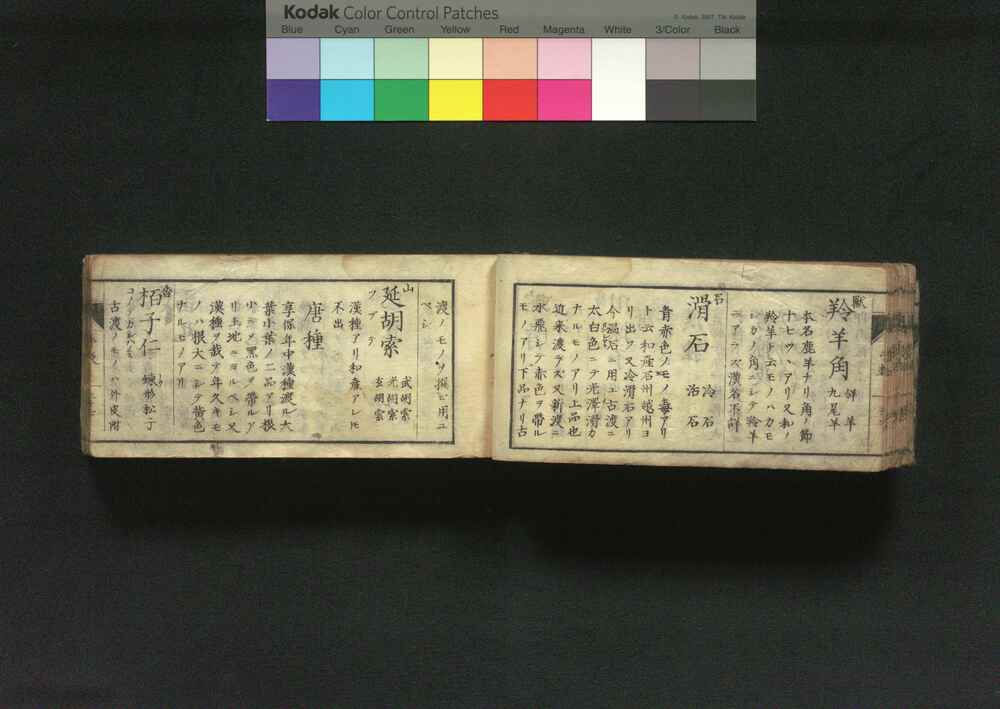 Kodak Color Control Patches
© Kodak, 2007, TM: Kodak
Blue Cyan Green Yellow Red Magenta White 3/Color Black
獸
羚羊角
羊
九尾羊
本名鹿羊ナリ角ノ節
十七ツヽアリ又和ノ
羚羊ト云モノハカモ
シカノ角ニシテ羚羊
ニアラズ漢名不詳
石
滑石
冷石
沾石
青赤色ノモノ毒アリ
ト云和産石州越州ヨ
リ出ツ又冷滑石アリ
今温石ニ用ユ古渡ニ
太白色ニテ光澤滑カ
ナルモノアリ上品也
近来渡ラズ又新渡ニ
水飛シテ赤色ヲ帶ル
モノアリ下品ナリ古
渡ノモノヲ撰ビ用ユ
ベシ
山
延胡索
武胡索
玄胡索
漢種アリ和産アレ𪜈
不出
唐種
享保年中漢種渡ル大
葉小葉ノ二品アリ根
黑色ヲ帶ルア
リ土地ニヨルベシ又
漢種ヲ栽テ年久キモ
ノハ根大ニシテ黄色
ナルモノアリ
栢子仁
古渡ノモノハ外皮附